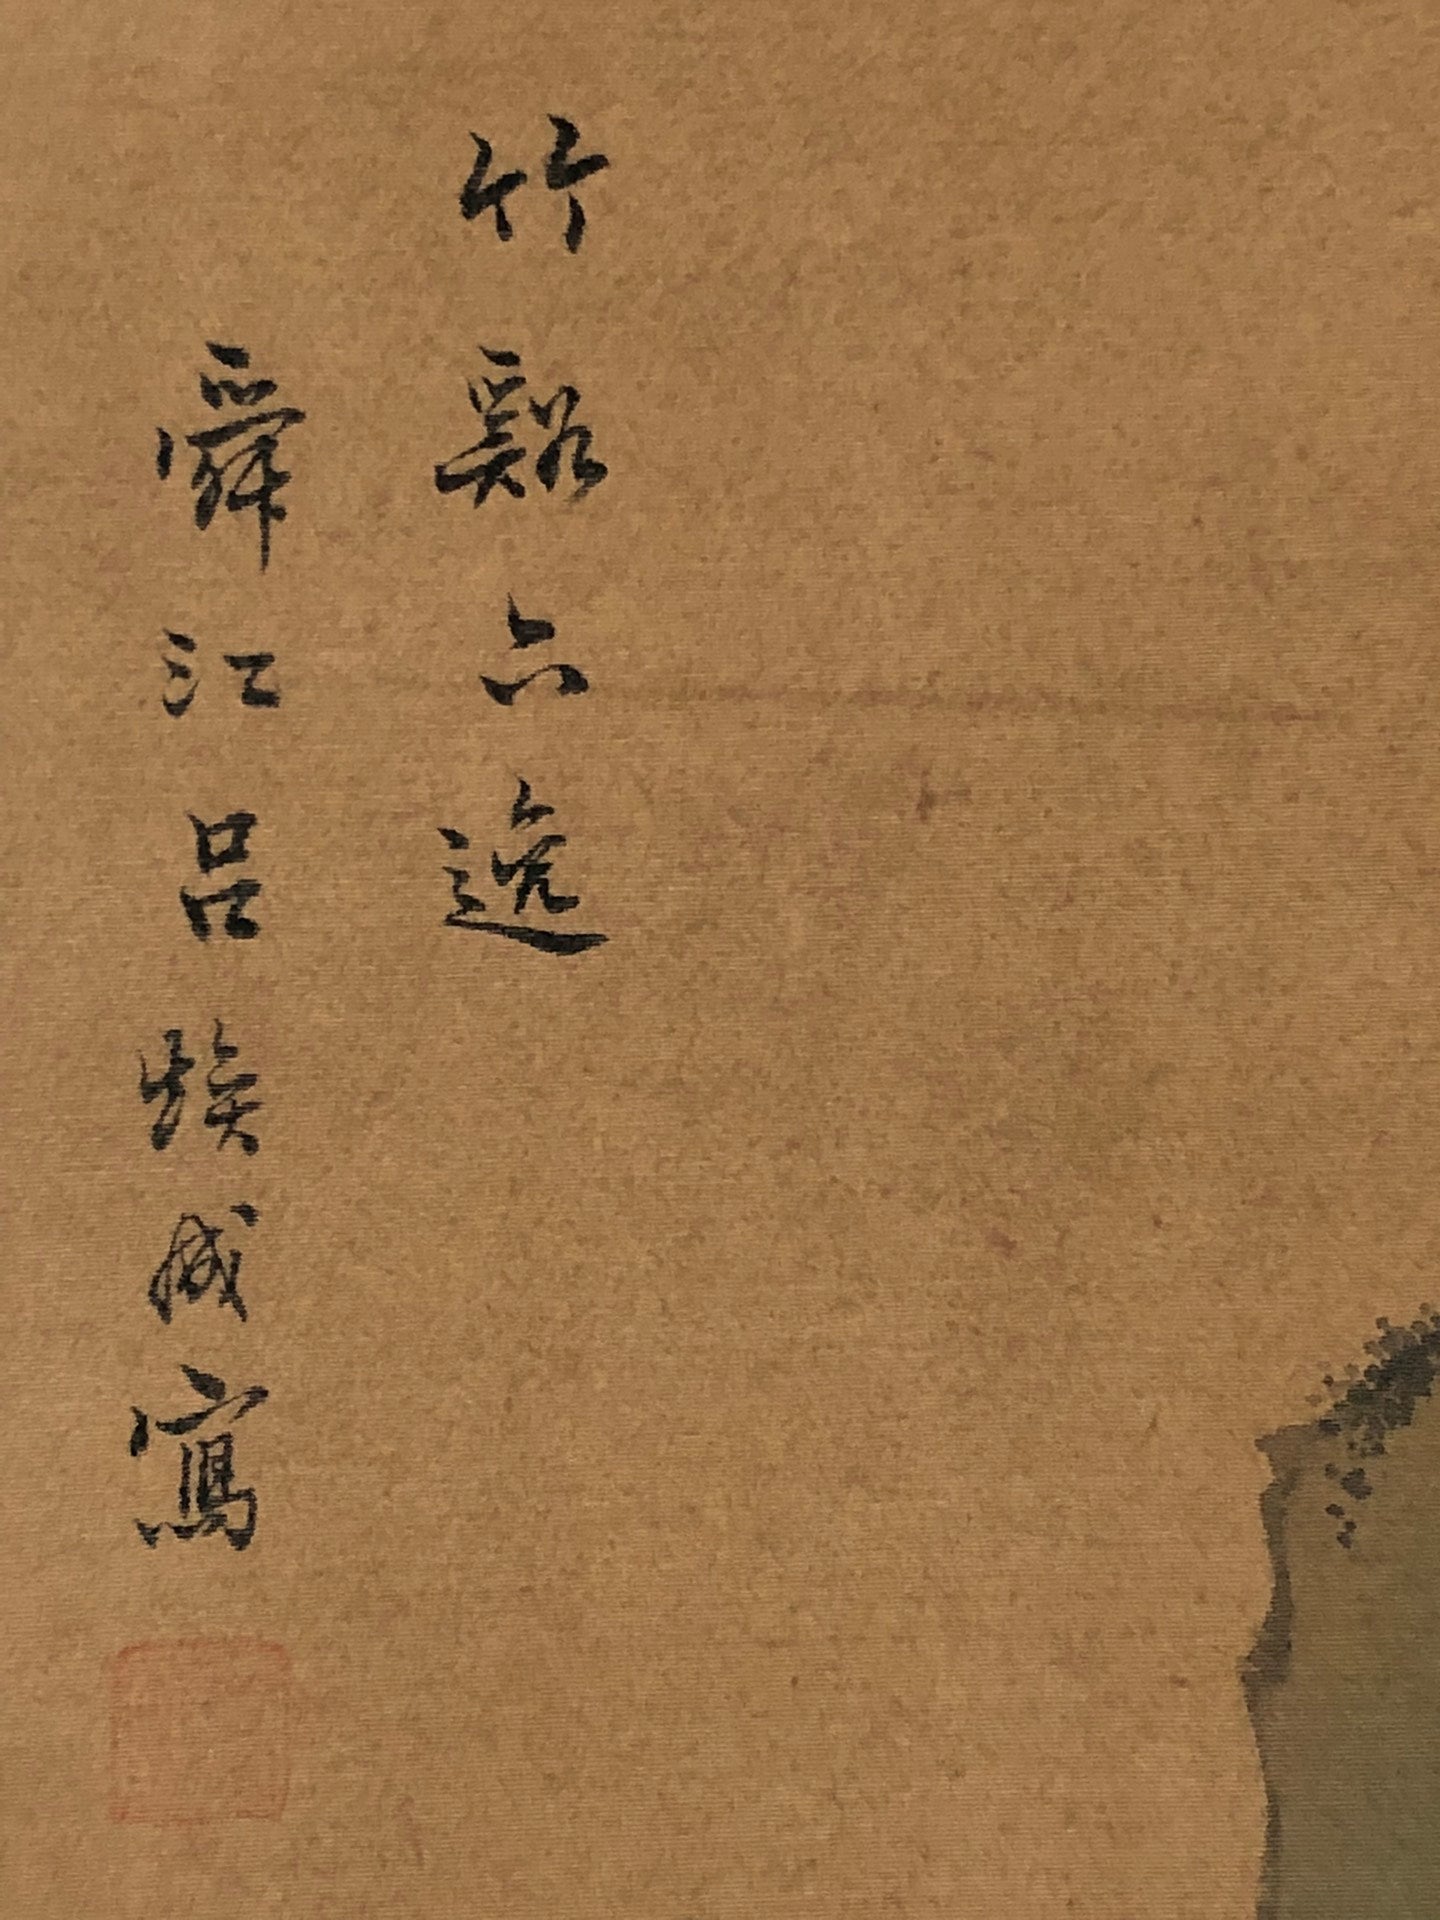 竹谿六逸
舜江吕焕成寫